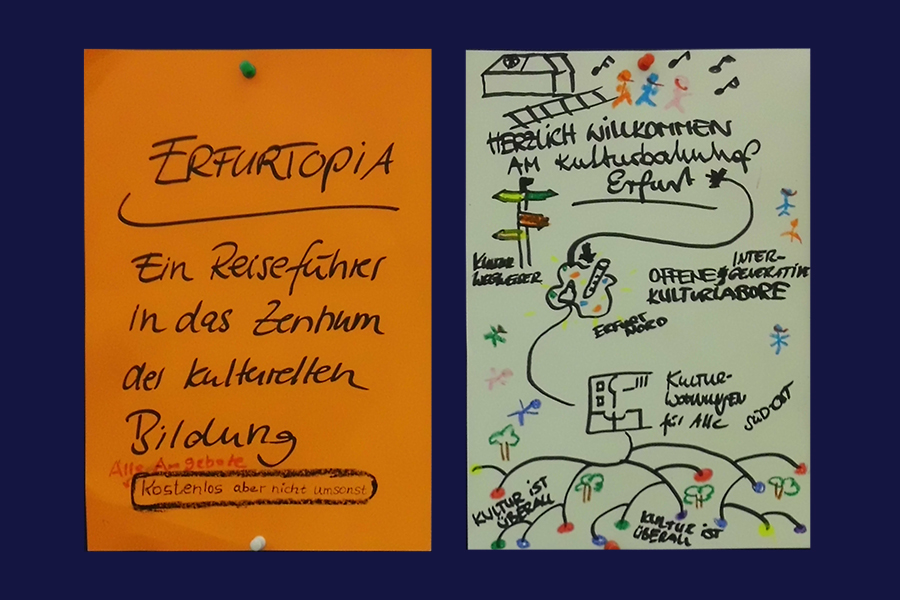 ERFURTOPIA
Ein Reiseführer
in das Zentrum
der kulturellen
Bildung
Alle Angebote
Kostenlos aber nicht umsonst
HERZLICH WILLKOMMEN
AM Kulturbahnhof
Erfurt
KULTUR
WEGWEISER
OFFENE INTER-
GENERATIVE
KULTURLABORE
ERFURT
NORD
KULTUR-
WOHNUNGEN
für Alle
SÜD-OST
KULTUR IST
ÜBERALL
KULTUR IST
ÜBERALL